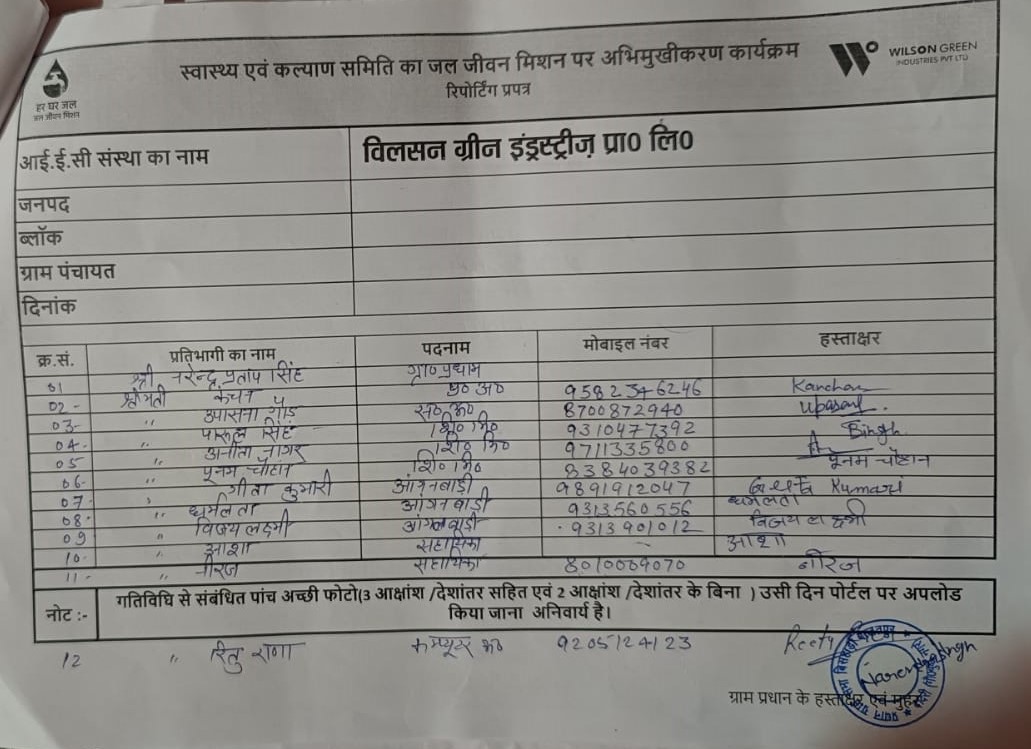 स्वास्थ्य एवं कल्याण समिति का जल जीवन मिशन पर अभिमुखीकरण कार्यक्रम
रिपोर्टिंग प्रपत्र
हर घर जल
जल जीवन मिशन
WILSON GREEN
INDUSTRIES PVT LTD
आई.ई.सी संस्था का नाम विलसन ग्रीन इंड्रस्ट्रीज़ प्रा0 लि0
जनपद
ब्लॉक
ग्राम पंचायत
दिनांक
क्र.सं. प्रतिभागी का नाम पदनाम मोबाइल नंबर हस्ताक्षर
01 श्री नरेन्द्र प्रताप सिंह ग्रा0 प्रधान
02- श्रीमती कंचन प्र0 अ0 9582346246 Kanchan
03- " उपासना गौड़ स0 अ0 8700872940 Upasana
04- " पारूल सिंह शि0 मि0 9310477392 Singh
05 " अनीता नागर शि0 मि0 9711335800
06- " पूनम चौहान शि0 मि0 8384039382 पूनम चौहान
07- " गीता कुमारी आंगनबाड़ी 9891912047 Kumari
08- " धर्मलता आंगनबाड़ी 9313560556 धर्मलता
09 " विजय लक्ष्मी आंगनबाड़ी 9313901012 विजय लक्ष्मी
10- " आशा सहायिका - आशा
11- " नीरज सहायिका 8010069070 नीरज
नोट :- गतिविधि से संबंधित पांच अच्छी फोटो(3 आक्षांश /देशांतर सहित एवं 2 आक्षांश /देशांतर के बिना ) उसी दिन पोर्टल पर अपलोड
किया जाना अनिवार्य है।
12 " रितु राणा कम्प्यूटर अ0 9205124123 Reetu
Narendra Singh
ग्राम प्रधान के हस्ताक्षर एवं मुहर